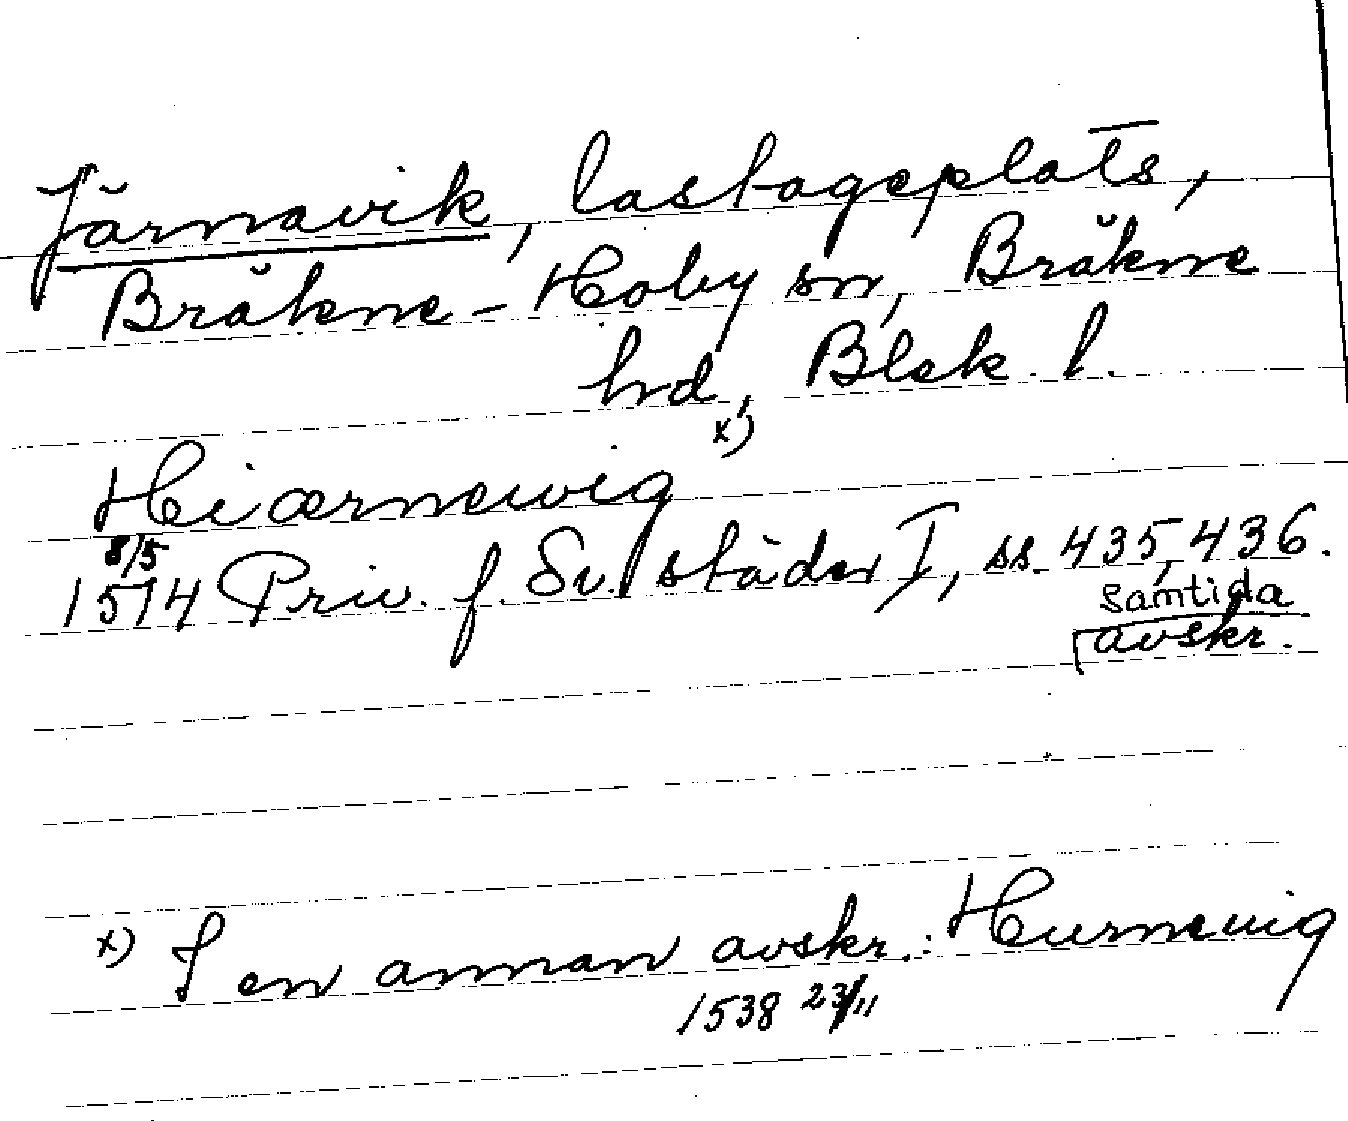 Järnavik, lastageplats,
Bräkne-Hoby sn, Bräkne
hd, Blek. l.
Hiærnewig x)
8/5
1514 Priv. f. Sv. städer I, ss. 435, 436.
Samtida
avskr.
x) I en annan avskr.: Hurnewig
1538 23/11